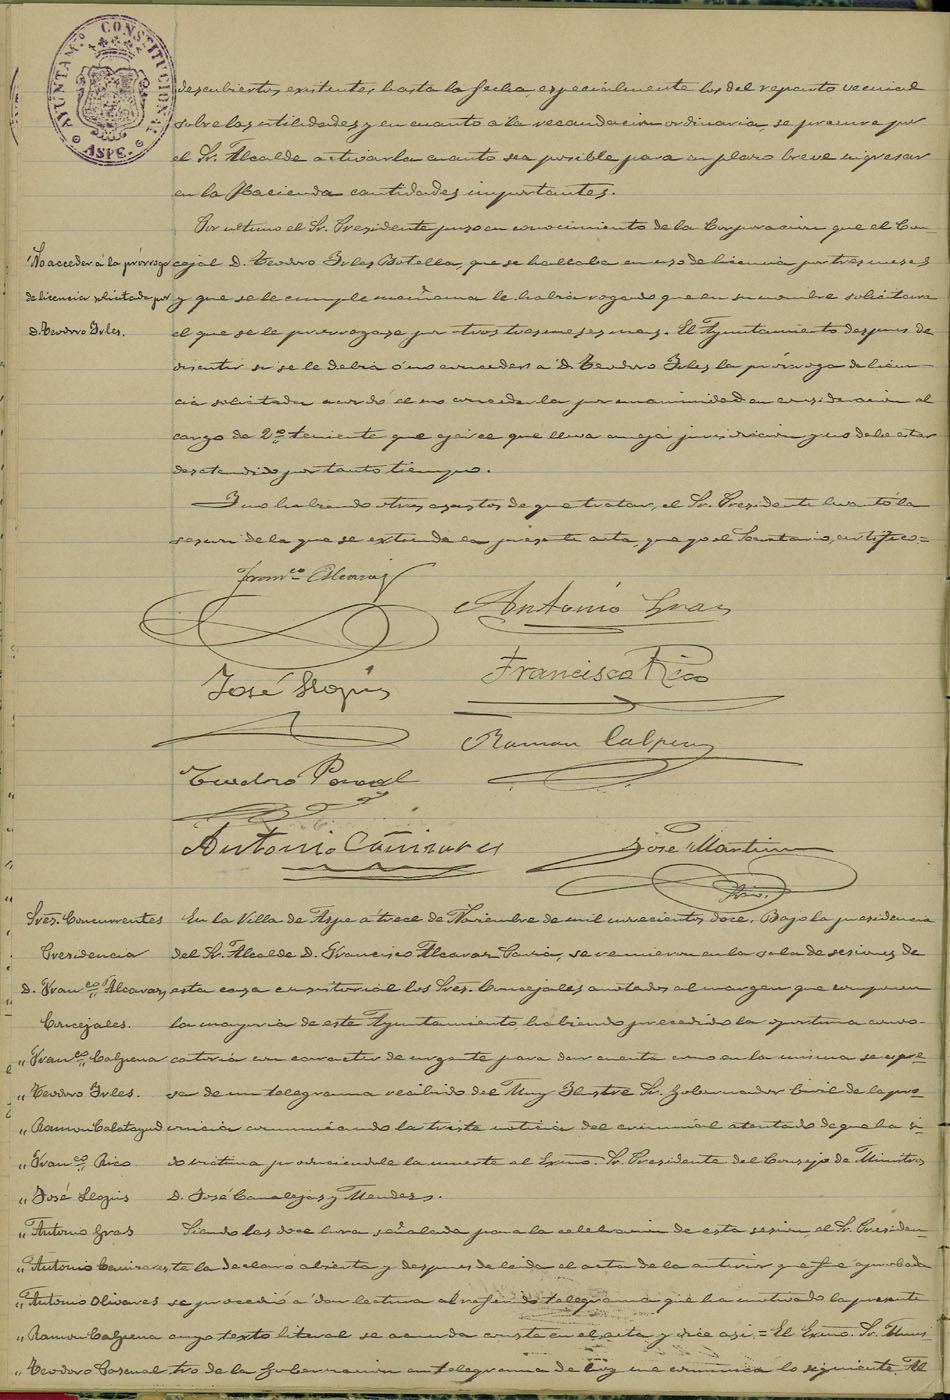 AYUNTAM.º CONSTITUCIONAL
ASPE.
descubiertos existentes hasta la fecha, especialmente los del reparto vecinal
sobre las utilidades y en cuanto a la recaudacion ordinaria, se procure por
el Sr. Alcalde activarla cuanto sea posible para en plazo breve ingresar
en la Hacienda cantidades importantes.
Por ultimo el Sr. Presidente puso en conocimiento de la Corporacion que el Con-
No acceder á la prórroga
de licencia solicitada por
D. Teodoro Irles.
cejal D. Teodoro Irles Botella, que se hallaba en uso de licencia por tres meses
y que se le cumple mañana le habia rogado que en su nombre solicitara
el que se le prorrogase por otros tres meses mas. El Ayuntamiento despues de
discutir si se le debia ó no conceder á D. Teodoro Irles la prórroga de licen-
cia solicitada acordó el no concederla por unanimidad en consideracion al
cargo de 2º teniente que ejerce que lleva aneja jurisdiccion y no debe estar
desatendido por tanto tiempo.
Y no habiendo otros asuntos de que tratar, el Sr. Presidente levantó la
sesion de la que se extiende la presente acta, que yo el Secretario, certifico.=
Franco Alcaraz
Antonio Gras
José Llopis
Francisco Rico
Ramon Calpena
Teodoro Pascual
Antonio Cañizares
José Martinez
Srio.
Sres. Concurrentes
Presidencia
D. Franco Alcaraz
Concejales.
" Franco Calpena
" Teodoro Irles.
" Ramon Calatayud
" Franco Rico
" José Llopis
" Antonio Gras
" Antonio Cañizares
" Antonio Olivares
" Ramon Calpena
" Teodoro Pascual
En la Villa de Aspe á trece de Noviembre de mil novecientos doce. Bajo la presidencia
del Sr. Alcalde D. Francisco Alcaraz, se reunieron en la sala de sesiones de
esta casa consistorial los Sres. Concejales anotados al margen que componen
la mayoria de este Ayuntamiento, habiendo precedido la oportuna convo-
catoria con caracter de urgente para dar cuenta como en la misma se expre-
sa de un telegrama recibido del Muy Ilustre Sr. Gobernador Civil de la pro-
vincia comunicando la triste noticia del criminal atentado de que ha si-
do victima produciendole la muerte al Excmo. Sr. Presidente del Consejo de Ministros
D. José Canalejas y Mendez.
Siendo las doce hora señalada para la celebracion de esta sesion, el Sr. Presiden-
te la declaró abierta y despues de leida el acta de la anterior que fué aprobada
se procedió á dar lectura al referido telegrama que ha motivado la presente
cuyo texto literal se acuerda conste en el acta y dice asi:= El Excmo. Sr. Minis-
tro de la Gobernacion en telegrama de hoy me comunica lo siguiente: Al